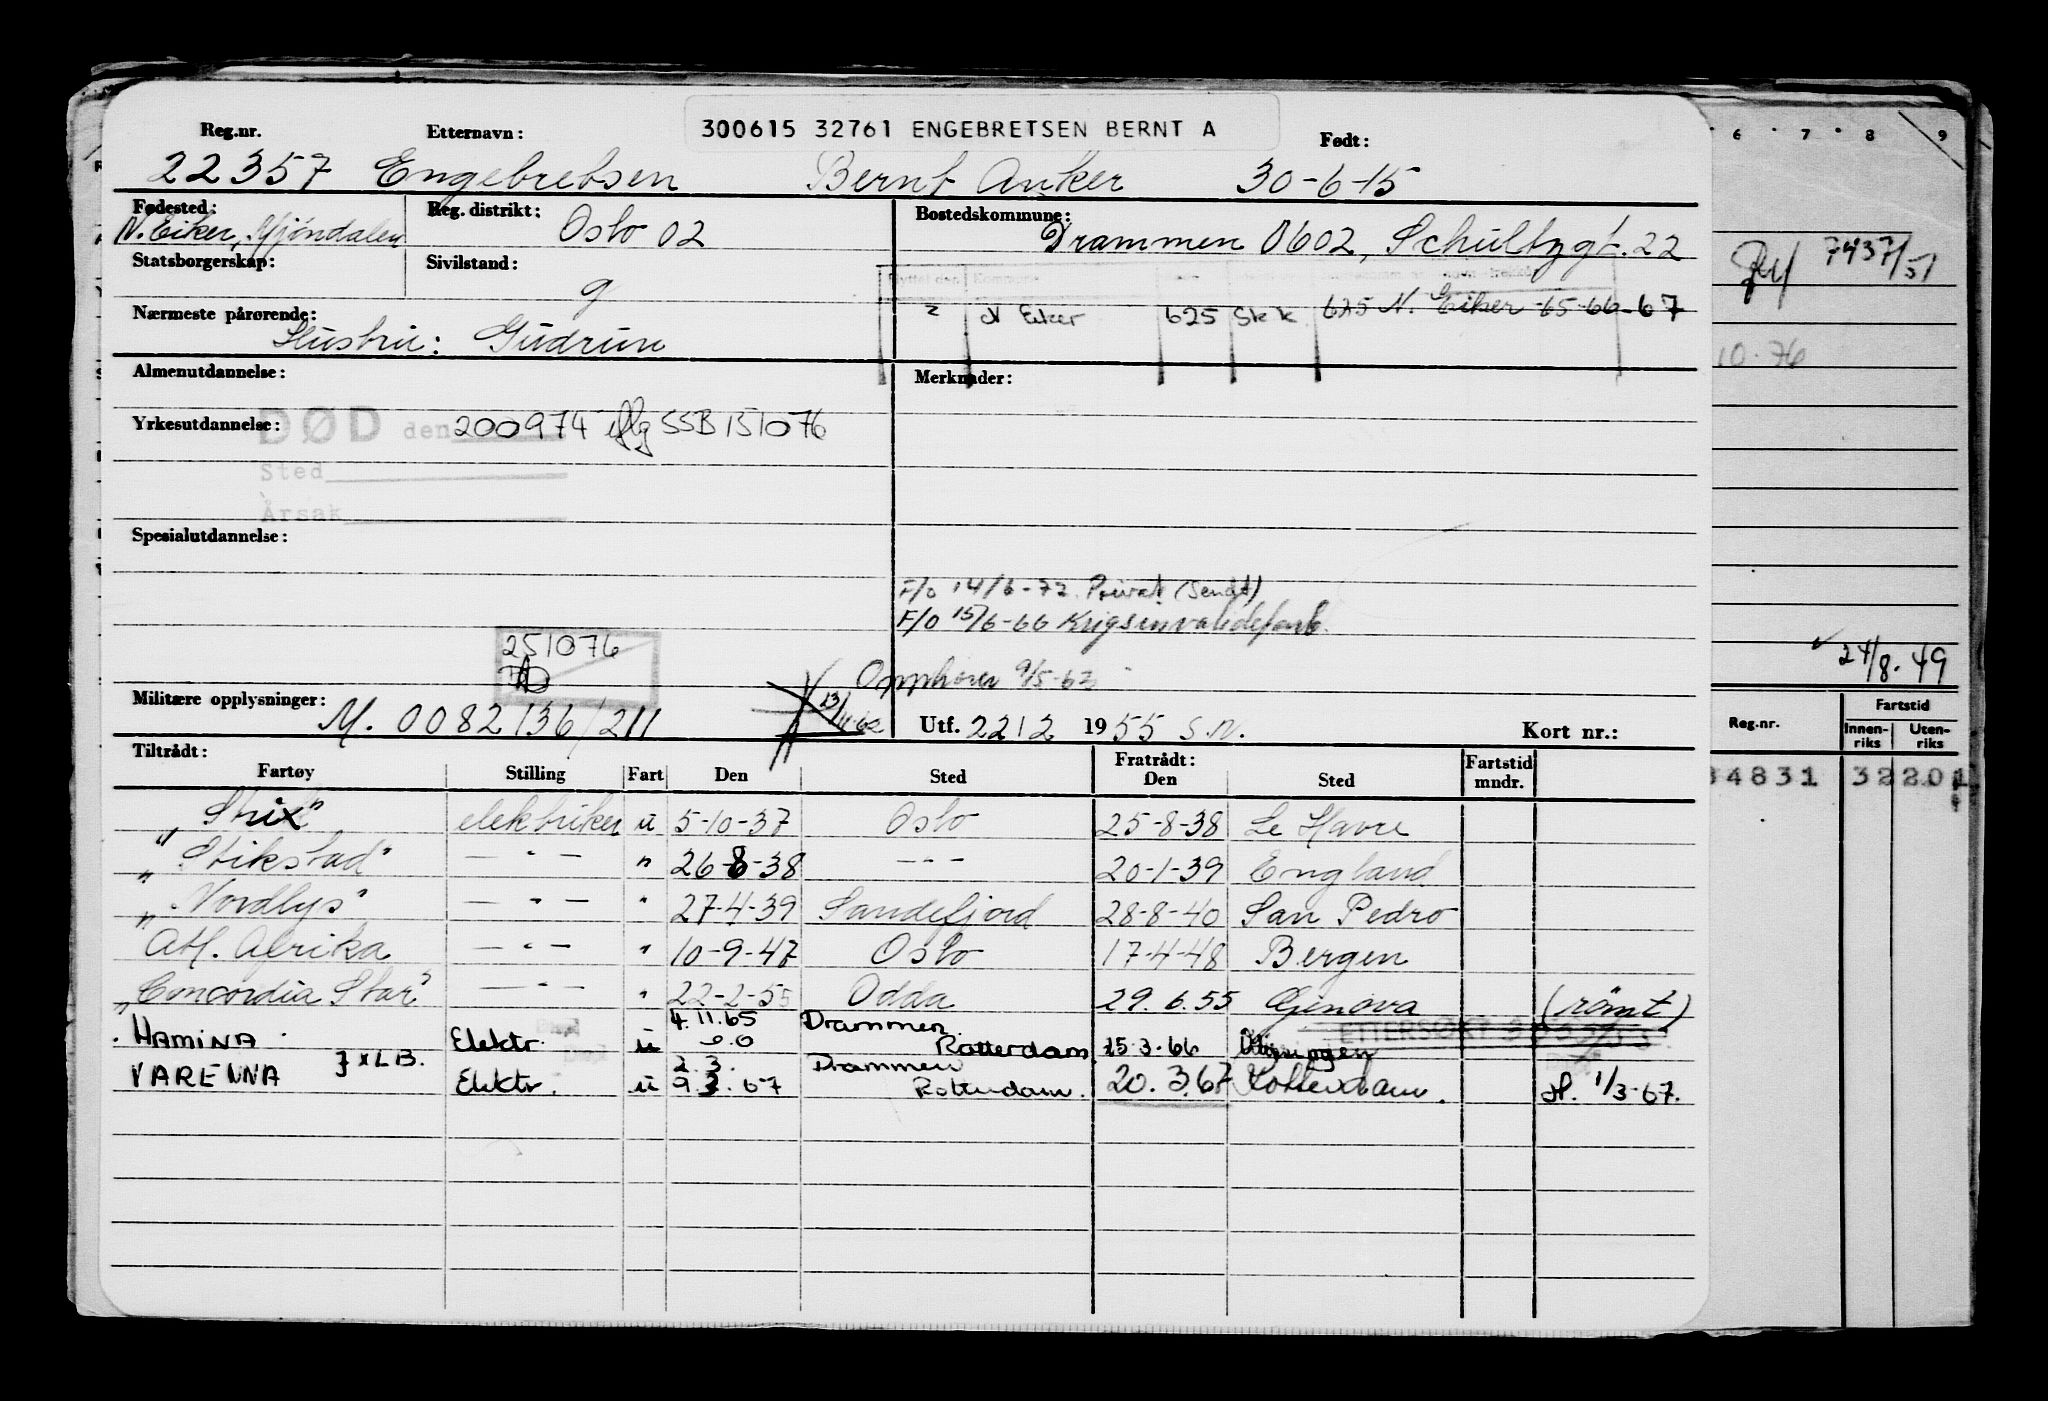 300615 32761 ENGEBRETSEN BERNT A
Reg.nr. Etternavn: Født:
22357 Engebretsen Bernt Anker 30-6-15
Fødested: Reg. distrikt: Bostedskommune:
N. Eiker, Mjöndalen Oslo 02 Drammen 0602, Schultzgt. 22
Statsborgerskap: Sivilstand:
g
N Eiker 625 Skk 625 N. Eiker -65-66-67
Nærmeste pårørende:
Hustru: Gudrun
Almenutdannelse: Merknader:
Yrkesutdannelse: DØD den 200974 iflg SSB 151076
Sted
Årsak
Spesialutdannelse:
F/o 14/6-72 Privat (sendt)
F/O 15/6-66 Krigsinvalideforb.
251076
Opphører 9/5-63
Militære opplysninger: M. 0082136/211
13/4-62
Utf. 2212 1955 S.N. Kort nr.:
Tiltrådt: Fratrådt:
Fartøy Stilling Fart Den Sted Den Sted Fartstid mndr.
"Strix" elektriker u 5-10-37 Oslo 25-8-38 Le Havre
"Stikstad" — " — " 26-8-38 - - - 20-1-39 England
"Nordlys" — " — " 27-4-39 Sandefjord 28-8-40 San Pedro
Atl. Afrika — " — " 10-9-47 Oslo 17-4-48 Bergen
"Concordia Star" — " — " 22-2-55 Odda 29.6.55 Genova (römt)
4.11.65 Drammen ETTERSØKT
HAMINA Elektr. u Rotterdam 25-3-66
} XLB. 2.3. Drammen
VARENNA Elektr. u 9.3.67 Rotterdam. 20.3.67 Rotterdam. H. 1/3-67.
6 7 8 9
7437/51
10.76
24/8.49
Reg.nr. Fartstid
Innenriks Utenriks
34831 32201